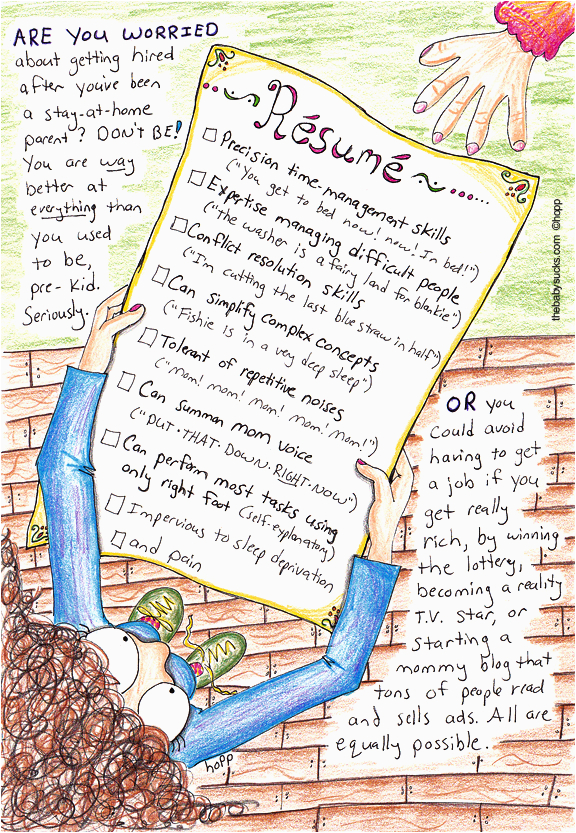 ARE YOU WORRIED
about getting hired
after you've been
a stay-at-home
parent? DON'T BE!
You are way
better at
everything than
you used
to be,
pre-kid.
Seriously.
Résumé
Precision time-management skills
("You get to bed now! now! In bed!")
Expertise managing difficult people
("the washer is a fairy land for blankie")
Conflict resolution skills
("I'm cutting the last blue straw in half")
Can simplify complex concepts
("Fishie is in a very deep sleep")
Tolerant of repetitive noises
("mom! mom! mom! mom! mom!")
Can summon mom voice
("PUT·THAT·DOWN·RIGHT·NOW")
Can perform most tasks using
only right foot (self-explanatory)
Impervious to sleep deprivation
and pain
thebabysucks.com ©hopp
OR you
could avoid
having to get
a job if you
get really
rich, by winning
the lottery,
becoming a reality
T.V. star, or
starting a
mommy blog that
tons of people read
and sells ads. All are
equally possible.
hopp